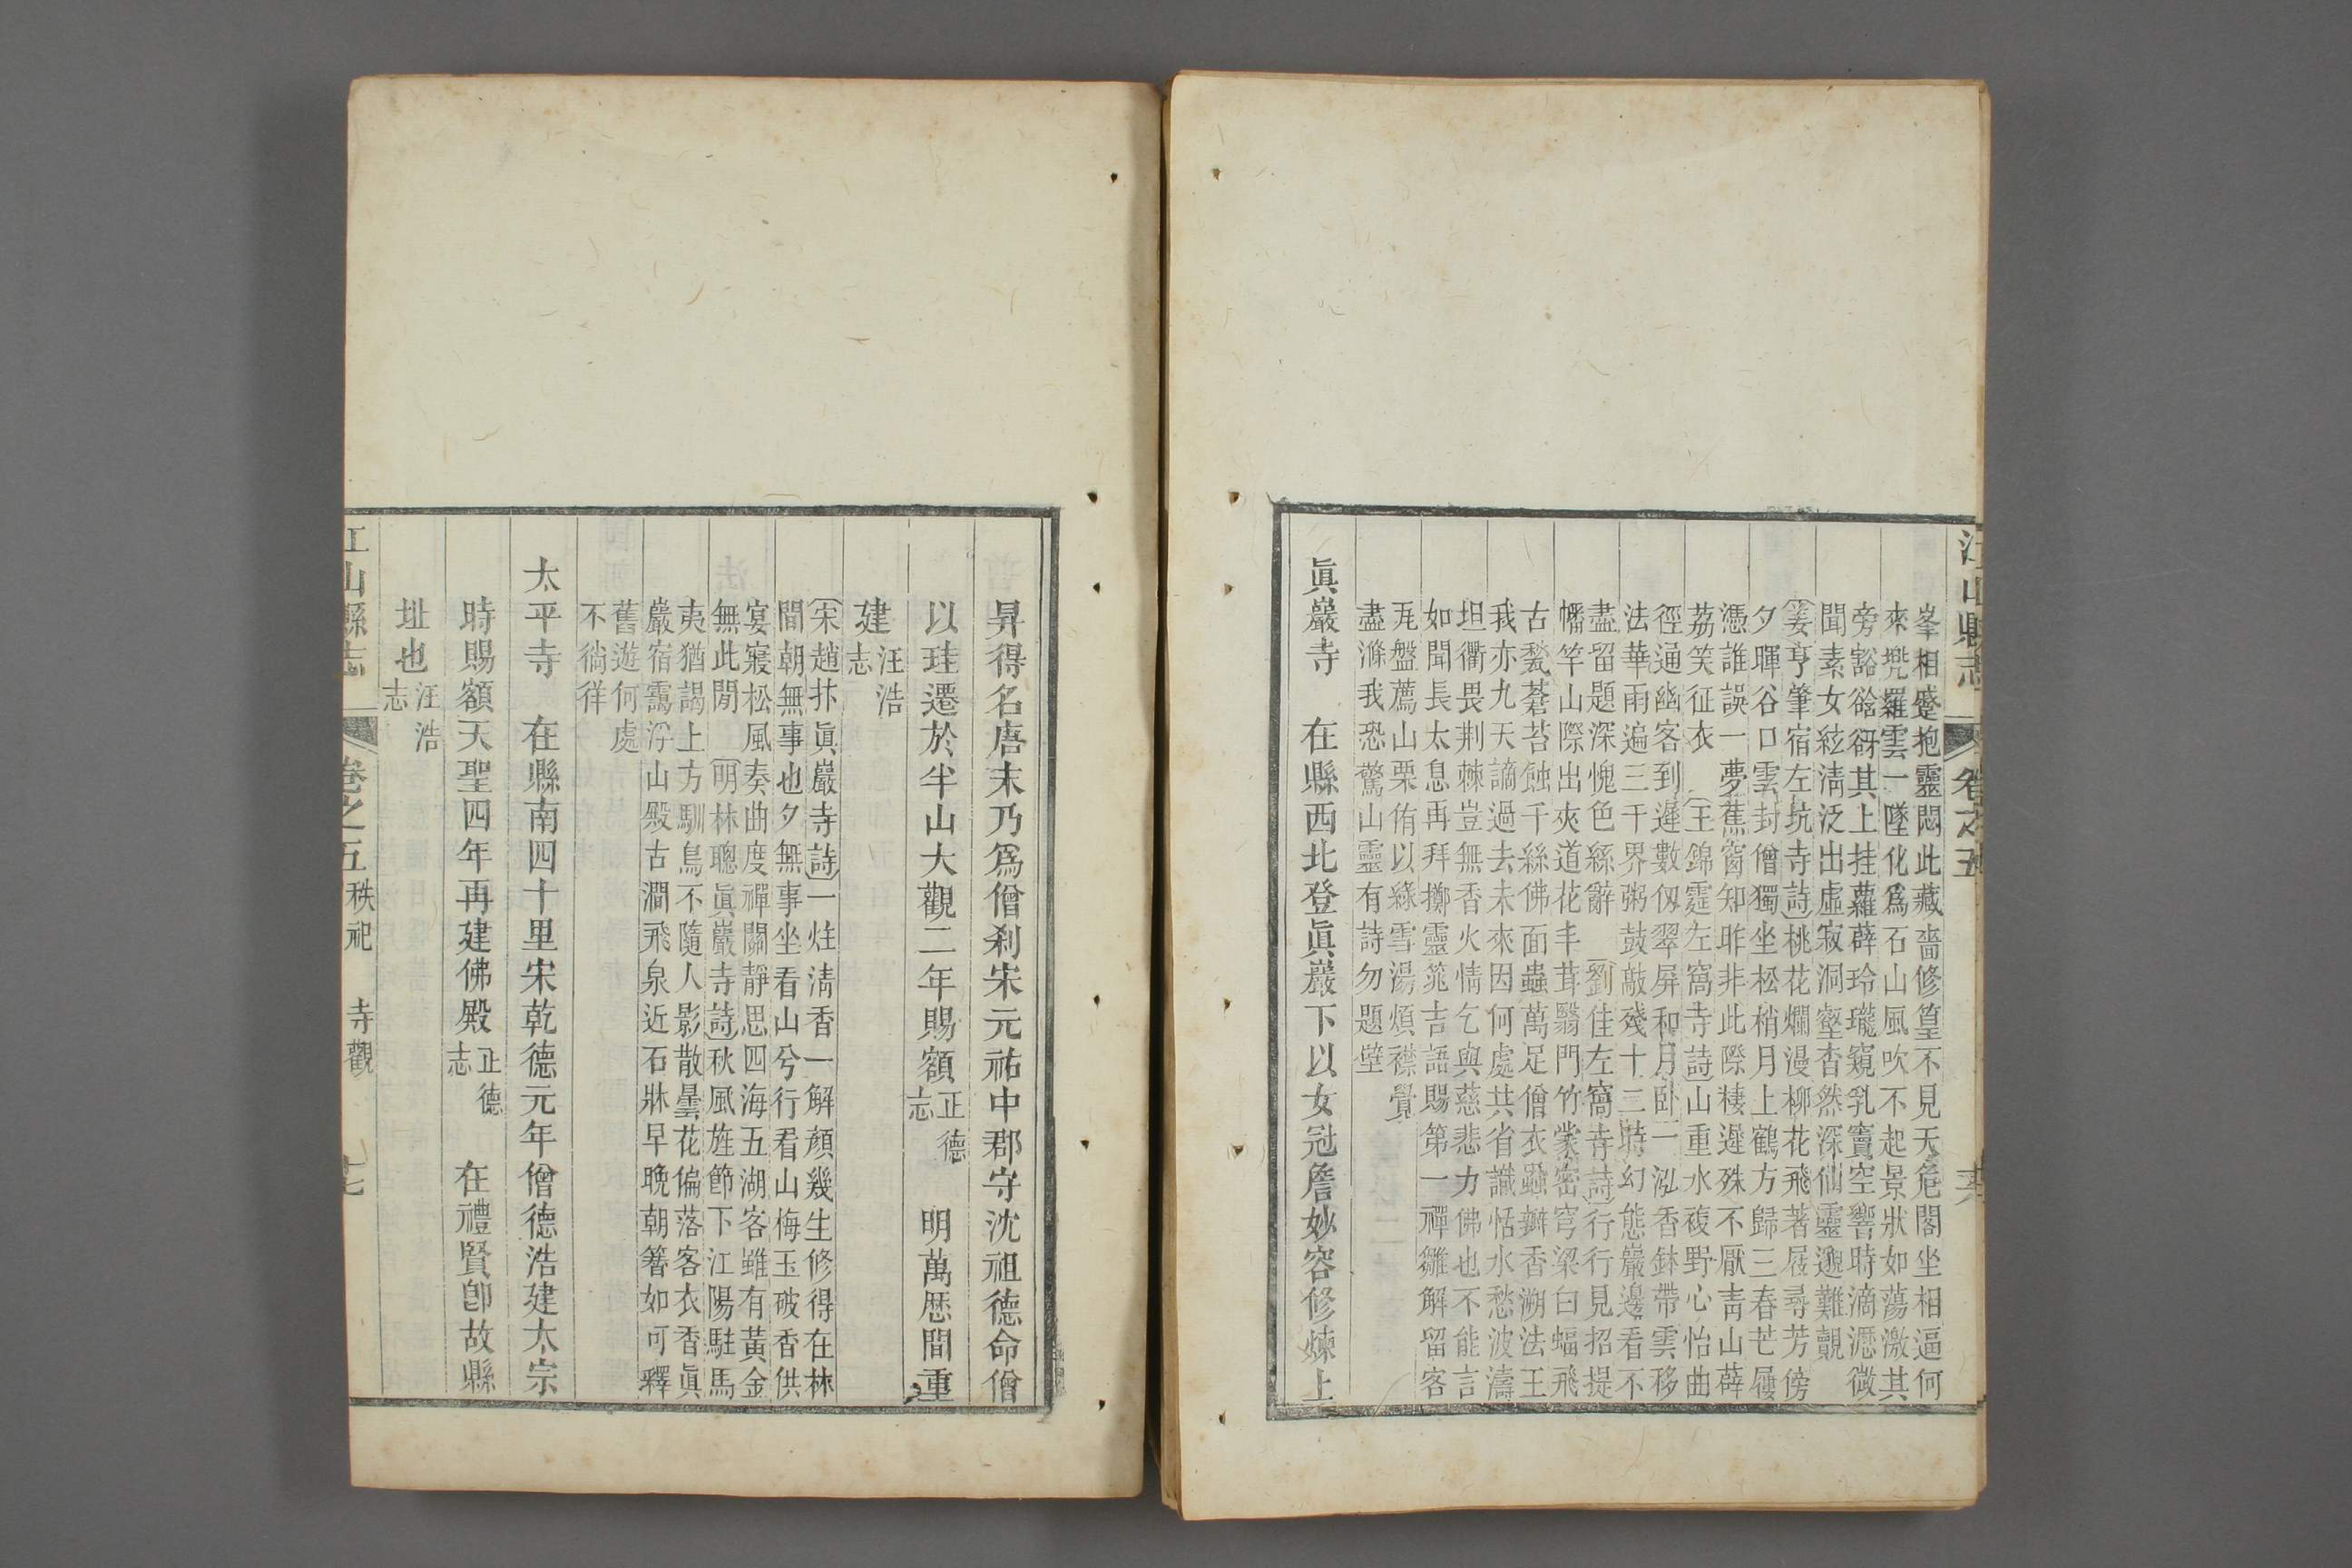 江山縣志 卷之五
峯相蹙抱靈悶此藏嗇修篁不見天危閣坐相逼何
來兜羅雲一墜化爲石山風吹不起景狀如蕩激其
旁豁谽谺其上挂蘿薜玲瓏窺乳竇空響時滴瀝微
聞素女絃淸泛出虛寂洞壑杳然深仙靈邈難覿
姜亨肇宿左坑寺詩桃花爛漫柳花飛著屐尋芳傍
夕暉谷口雲封僧獨坐松梢月上鶴方歸三春芒屨
憑誰誤一夢蕉窗知昨非此際棲遲殊不厭青山薜
荔笑征衣 王錦霆左窩寺詩山重水複野心怡曲
徑通幽客到遲數仭翠屏和月卧一泓香鉢帶雲移
法華雨遍三千界粥鼓敲殘十二時幻態巖邊看不
盡留題深愧色絲辭 劉佳左窩寺詩行行見招提
幡竿山際出夾道花丰茸翳門竹蒙密穹梁白蝠飛
古甃蒼苔蝕千絲佛面蟲萬足僧衣蝨辦香溯法王
我亦九天謫過去未來因何處共省識恬水愁波濤
坦衢畏荆棘豈無香火情乞與慈悲力佛也不能言
如聞長太息再拜擲靈筊吉語賜第一禪雛解留客
瓦盤薦山栗侑以綠雪湯煩襟覺
盡滌我恐驚山靈有詩勿題壁
眞巖寺 在縣西北登眞巖下以女冠詹妙容修煉上
昇得名唐末乃爲僧刹宋元祐中郡守沈祖德命僧
以珪遷於半山大觀二年賜額正德志 明萬歷間重
建汪浩志
宋趙抃眞巖寺詩一炷淸香一解顏幾生修得在林
間朝無事也夕無事坐看山兮行看山梅玉破香供
宴寢松風奏曲度禪關靜思四海五湖客雖有黃金
無此閒 明林聰眞巖寺詩秋風旌節下江陽駐馬
夷猶謁上方馴鳥不隨人影散曇花偏落客衣香眞
巖宿靄浮山殿古澗飛泉近石牀早晚朝簪如可釋
舊遊何處
不徜徉
太平寺 在縣南四十里宋乾德元年僧德浩建太宗
時賜額天聖四年再建佛殿正德志 在禮賢卽故縣
址也汪浩志
江山縣志 卷之五 秩祀 寺觀